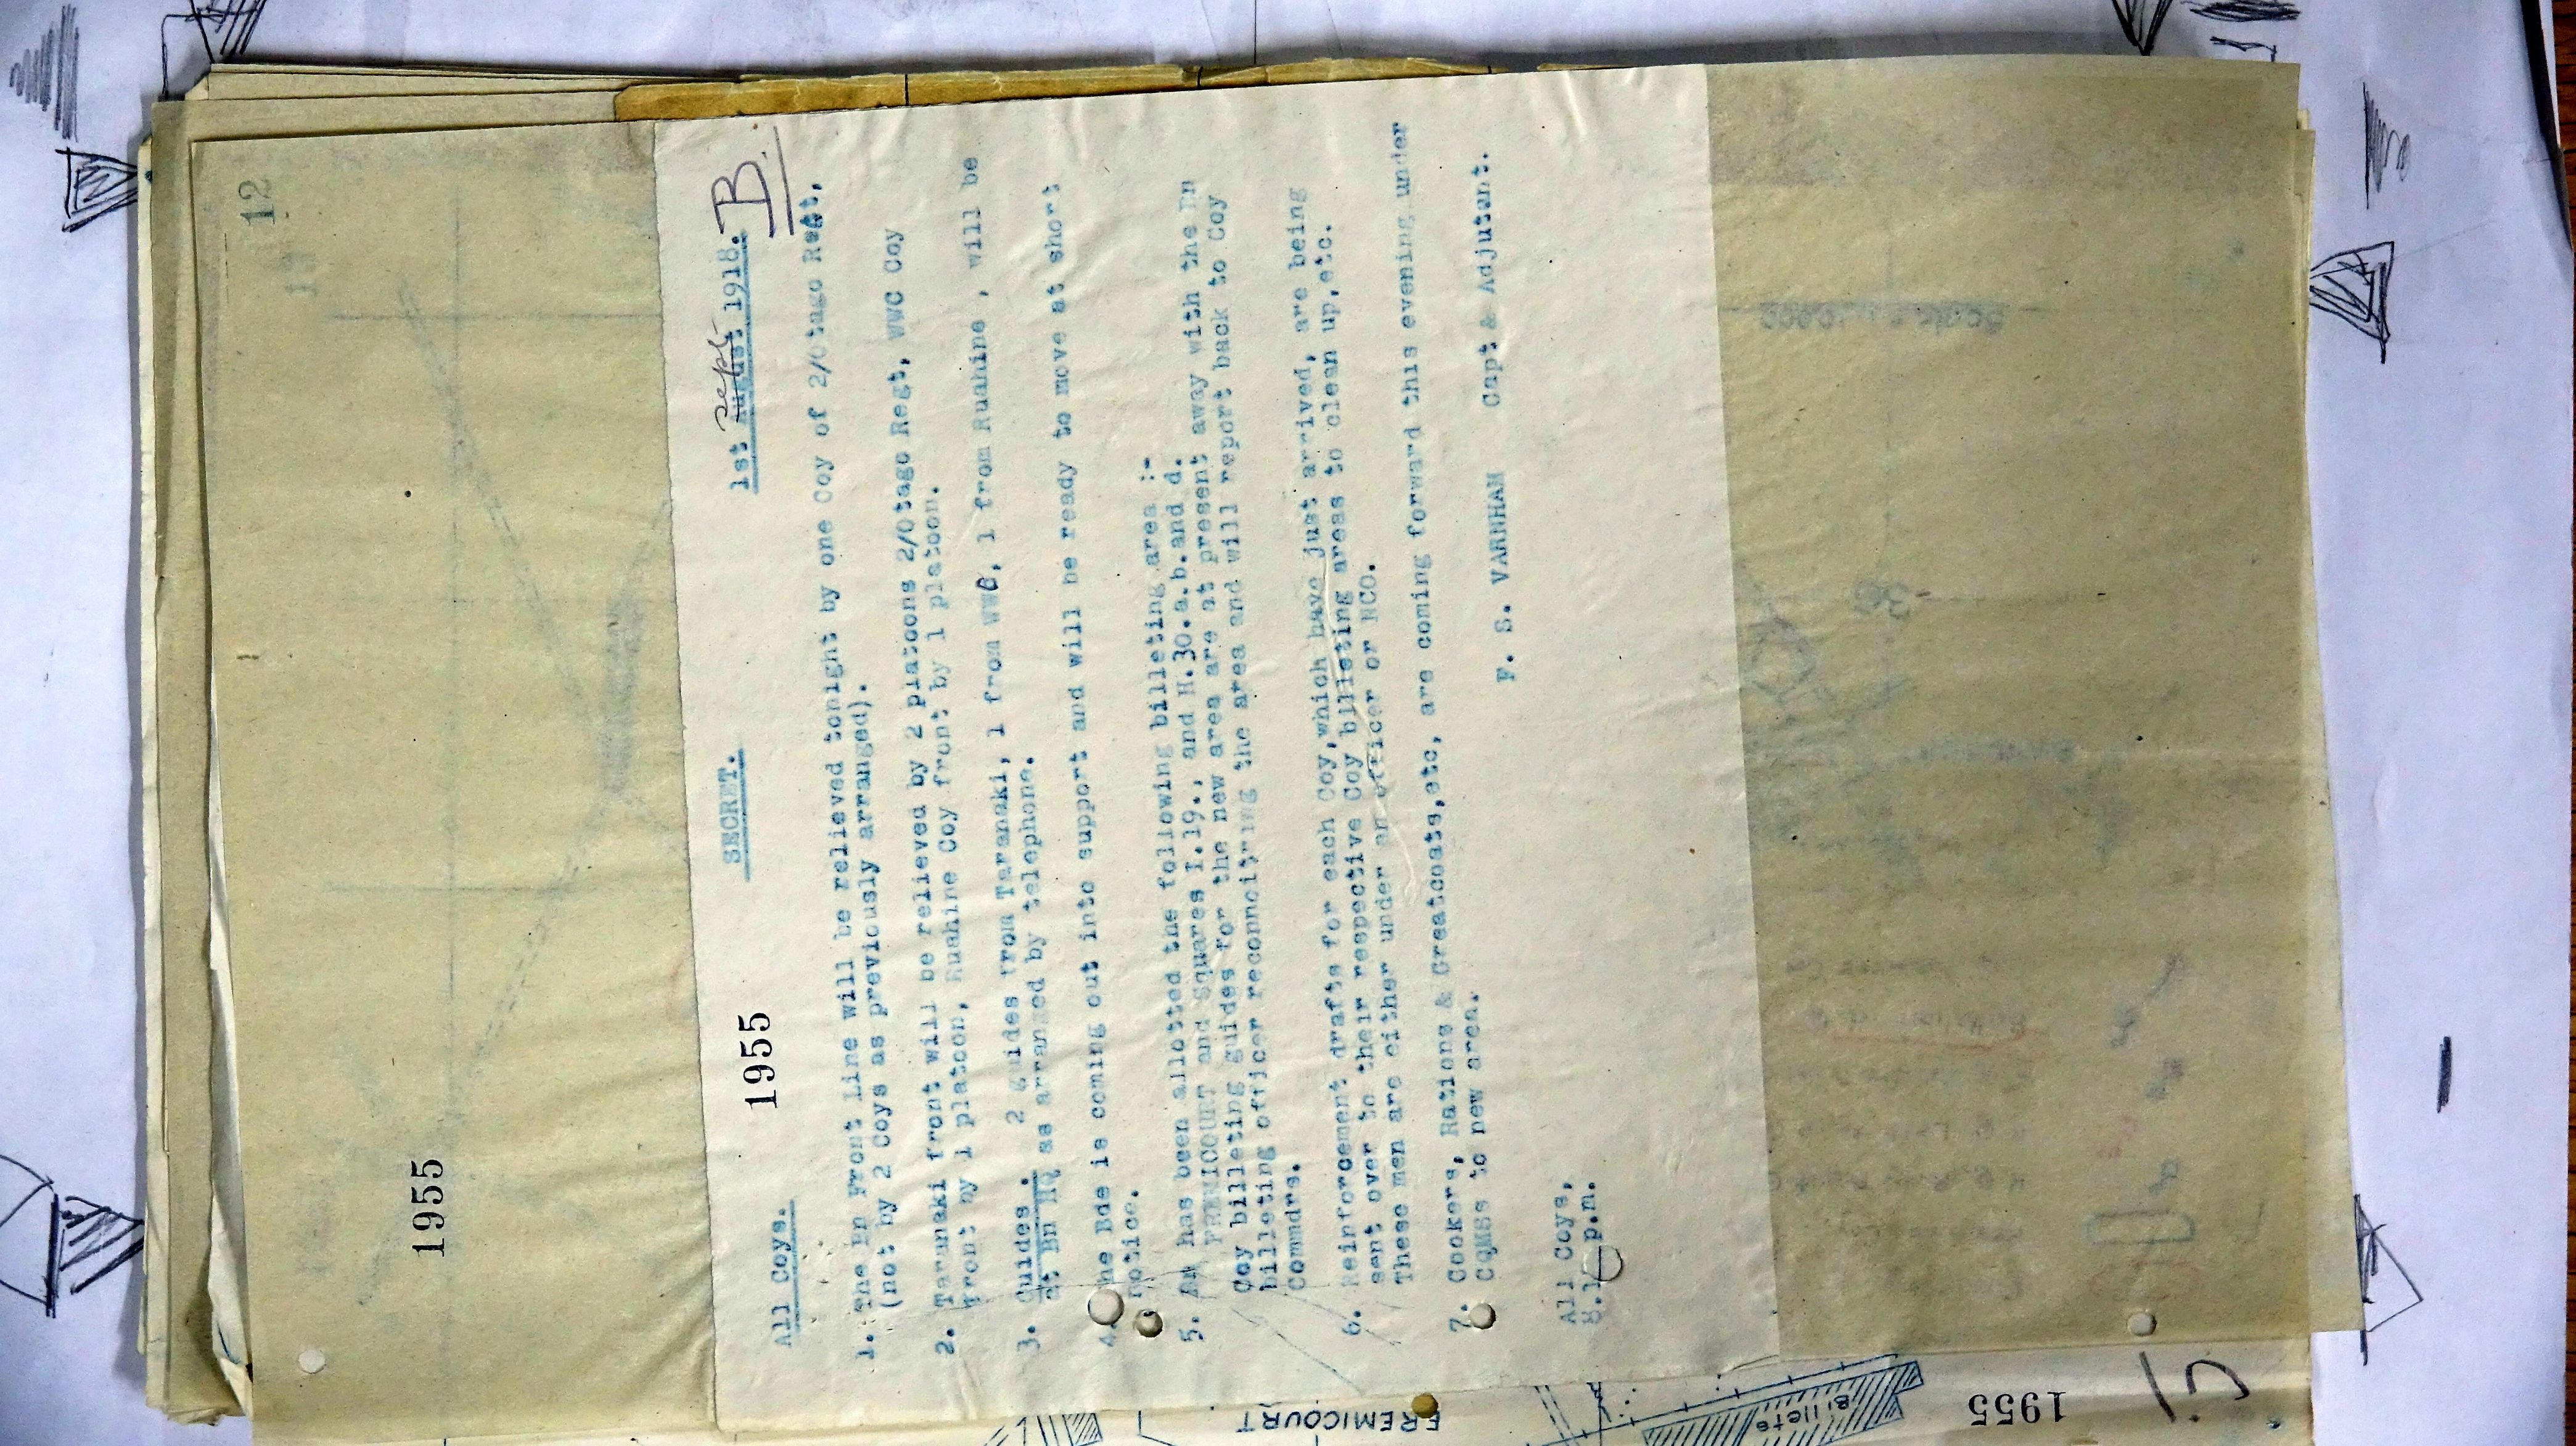 12
1955
SECRET.
1st Sept August 1918.
B.
1955
All Coys.
1. The Bn Front Line will be relieved tonight by one Coy of 2/Otago Regt,
(not by 2 Coys as previously arranged).
2. Taranaki front will be relieved by 2 platoons 2/Otago Regt, WWC Coy
front by 1 platoon, Ruahine Coy front by 1 platoon.
3. Guides. 2 guides from Taranaki, 1 from WWC, 1 from Ruahine , will be
at Bn HQ as arranged by telephone.
4. The Bde is coming out into support and will be ready to move at short
notice.
5. Bn has been allotted the following billeting area :-
FREMICOURT and Squares I.19., and H.30.a.b.and d.
Coy billeting guides for the new area are at present away with the Bn
billeting officer reconnoitring the area and will report back to Coy
Commdrs.
6. Reinforcement drafts for each Coy,which have just arrived, are being
sent over to their respective Coy billeting areas to clean up,etc.
These men are either under an officer or NCO.
7. Cookers, Rations & Greatcoats,etc, are coming forward this evening under
CQMSs to new area.
F. S. VARNHAM Capt & Adjutant.
All Coys,
p.m.
FREMICOURT
Billets
1955